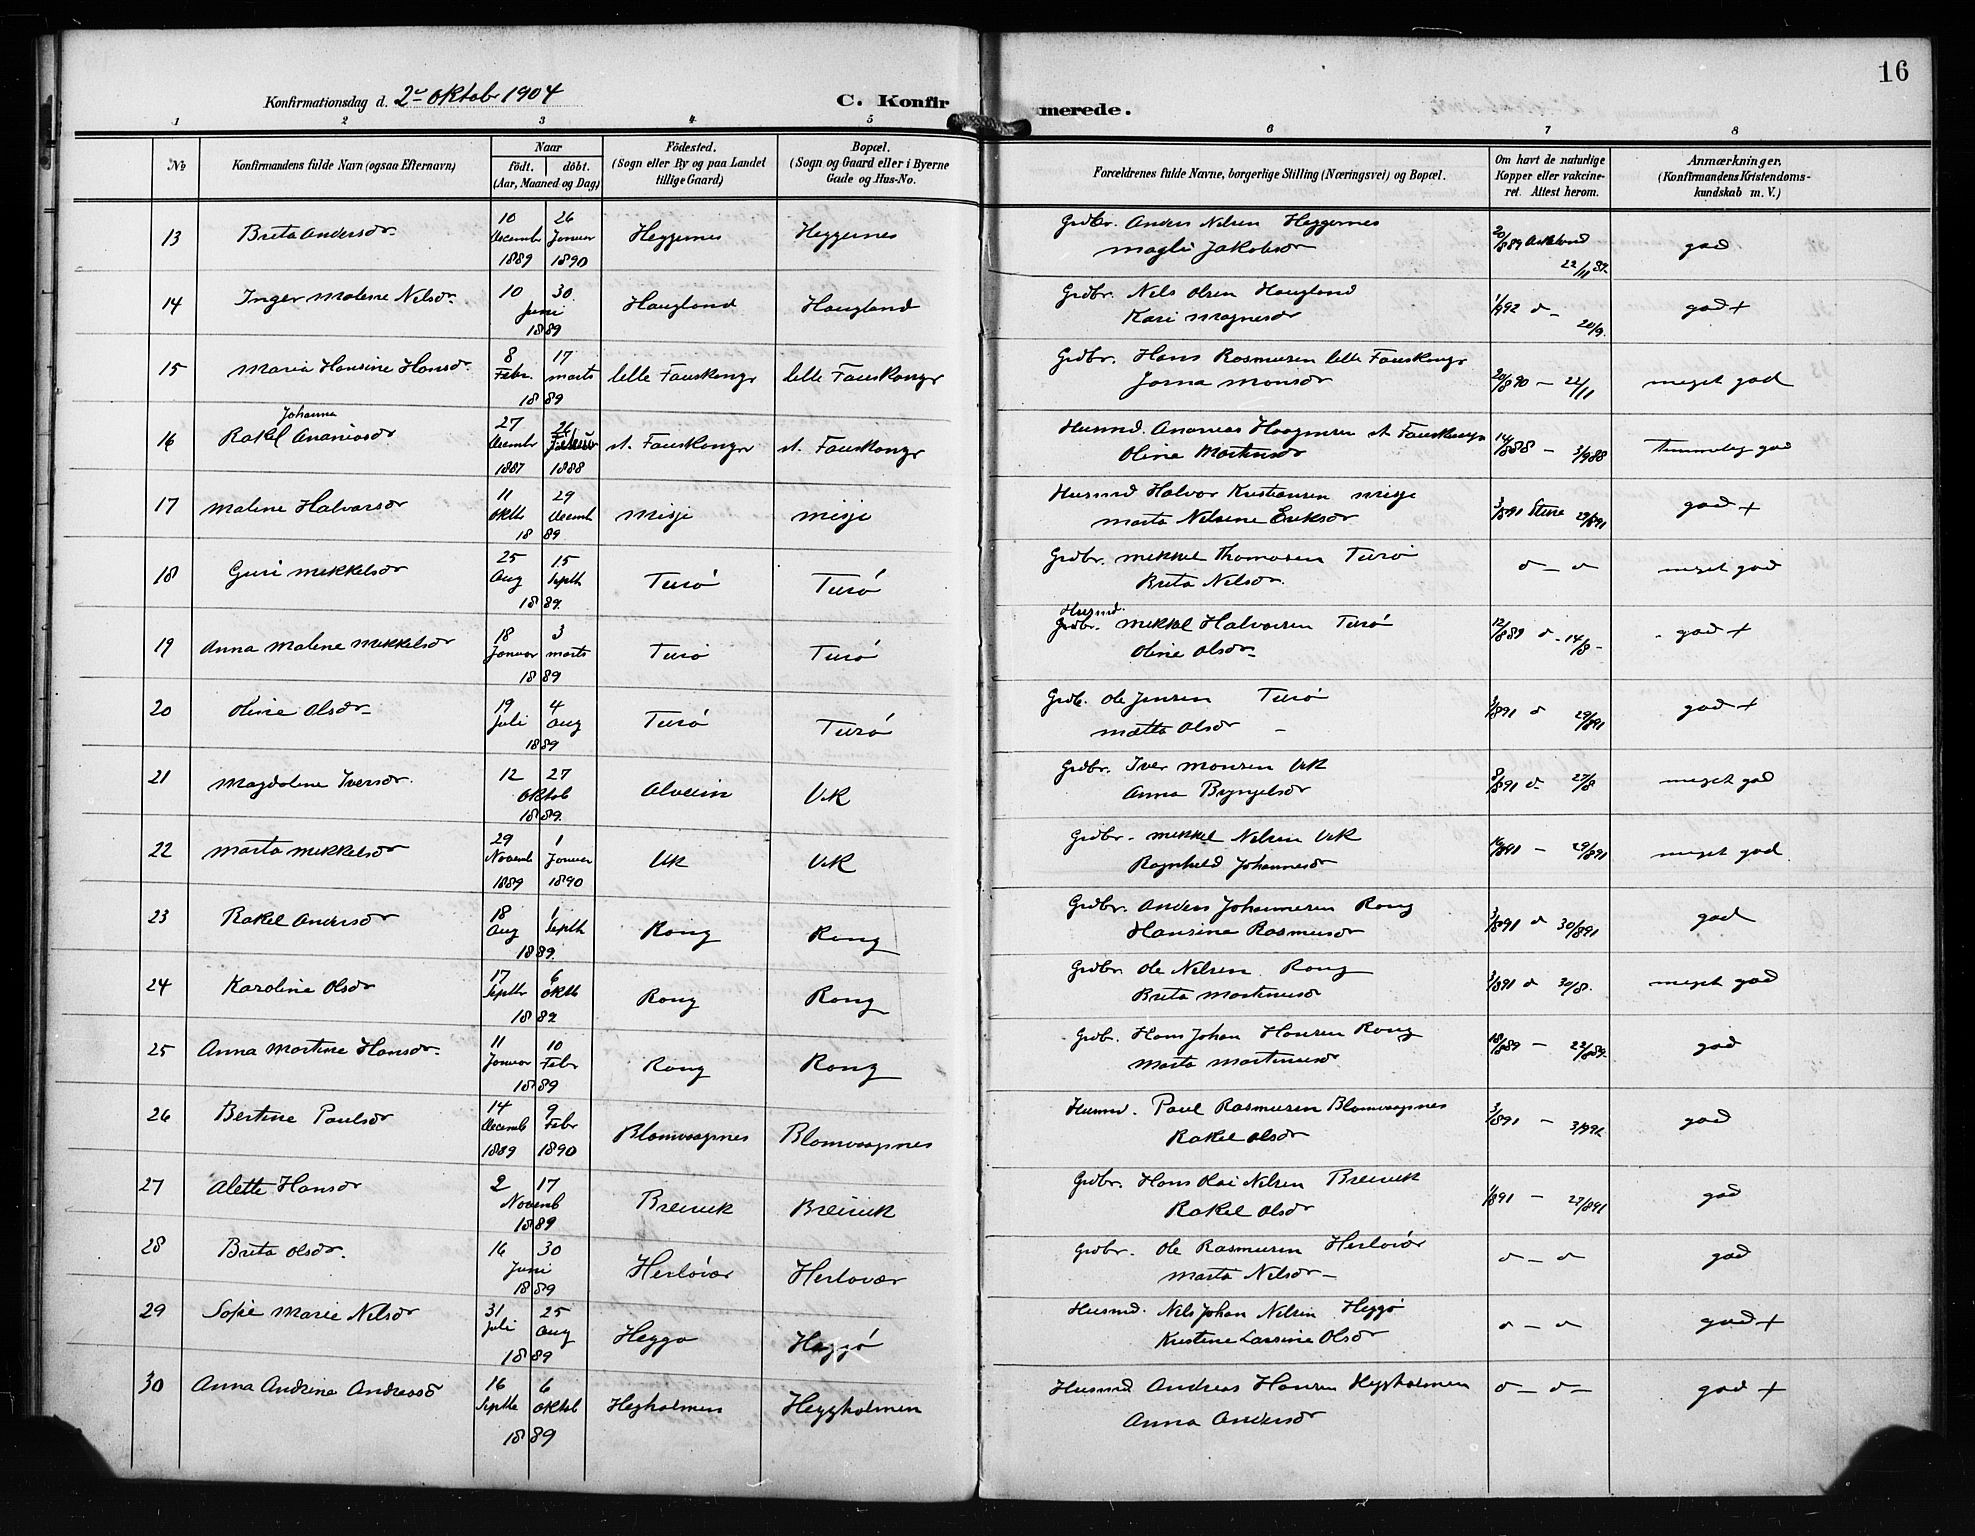 16
Konfirmationsdag d. 2n Oktob 1904
C. Konfirmerede.
1 2 3 4 5 6 7 8
No
Konfirmandens fulde Navn (ogsaa Efternavn)
Naar
Födt. döbt.
(Aar, Maaned og Dag)
Födested.
(Sogn eller By og paa Landet
tillige Gaard)
Bopæl.
(Sogn og Gaard eller i Byerne
Gade og Hus-No.
Forældrenes fulde Navne, borgerlige Stilling (Næringsvei) og Bopæl.
Om havt de naturlige
Kopper eller vakcine-
ret. Attest herom.
Anmærkninger,
(Konfirmandens Kristendoms-
kundskab m. V.)
13 Brita Andersdr. 10 Decembr 1889 26 Januar 1890 Heggernes Heggernes Grdbr. Anders Nilsen Heggernes
Magli Jakobsdr 20/8 89 Askeland 22/11 89 god
14 Inger Malene Nilsdr. 10 30 Juni 1889 Haugland Haugland Grdbr. Nils Olsen Haugland
Kari Magnesdr god +
15 Maria Hansine Hansdr. 8 Febr. 17 Marts 1889 lille Fauskanger lille Fauskanger Grdbr. Hans Rasmusen lille Fauskanger
Jorna Monsdr 20/8 90 - 22/11 meget god
16 Rakel Johanna Ananiasdr 27 Decembr 1887 26 Februar 1888 st. Fauskanger st. Fauskanger Husmd. Ananias Haagensen st Fauskanger
Oline Martinsdr 14/8 88 - 3/9 88 temmelig god
17 Malene Halvorsdr 11 Oktb 29 Decemb 1889 Misje Misje Husmd Halvor Kristiansen Misje
Marta Nilsine Eriksdr 3/8 91 29/8 91 god +
18 Guri Mikkelsdr 25 Aug 15 Septb 1889. Turö Turö Grdbr. Mikkel Thomasen Turö
Brita Nilsdr. d - d meget god
19 Anna Malene Mikkelsdr 18 Januar 3 Marts 1889 Turö Turö Husmd. Grdbr. Mikkel Halvorsen Turö
Oline Olsdr 12/8 89 d - 14/8 - god +
20 Oline Olsdr 19 Juli 4 Aug 1889 Turö Turö Grdb. Ole Jensen Turö
Mætta Olsdr - 3/8 91 d 29/8 91 god +
21 Magdalene Iversdr. 12 27 Oktob 1889. Alveim Vik Grdbr. Iver Monsen Vik
Anna Byngelsdr 8/8 91 d 27/8 meget god
22 Marta Mikkelsdr 29 Novemb 1889 1 Januar 1890 Vik Vik Grdbr. Mikkel Nilsen Vik
Ragnhild Johannesdr 29/8 91 meget god
23 Rakel Andersdr 18 Aug 1 Septb 1889. Rong Rong Grdbr. Anders Johannesen Rong
Hansine Rasmusdr 3/8 91 d 30/8 91 god
24 Karoline Olsdr 17 Septbr 6 Oktb 1889 Rong Rong Grdbr Ole Nilsen Rong
Brita Martinusdr 3/8 91 d 30/8. meget god
25 Anna Martine Hansdr. 11 Januar 10 Febr 1889 Rong Rong Grdb. Hans Johan Hansen Rong
Marta Martinusdr 18/8 89 - 22/8 89. god
26 Bertine Paulsdr 14 Decemb 1889 9 Febr 1890 Blomvaagnes Blomvaagnes Husmd. Paul Rasmusen Blomvaagnes
Rakel Olsdr 3/8 91 - god
27 Alette Hansdr 2 17 Novemb 1889 Breivik Breivik Grdbr. Hans Kai Nilsen Breivik
Rakel Olsdr 1/8 91 - 27/8 91 god
28 Brita Olsdr. 16 30 Juni 1889 Herlövær Herlovær Grdbr. Ole Rasmusen Herlövær
Marta Nilsdr - d - d god
29 Sofie Marie Nilsdr 31 Juli 25 Aug 1889 Heggö Heggö Husmd. Nils Johan Nilsen Heggö
Kristine Larsine Olsdr d - d god +
30 Anna Andrina Andreasd 16 Septbr 6 Oktob 1889 Hegholmen Heggholmen Husmd Andreas Hansen Heggholmen
Anna Andersdr d - d - god +